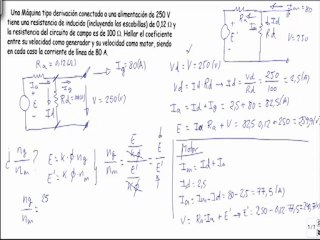 Una Máquina tipo derivación conectada a una alimentación de 250 V
tiene una resistencia de inducido (incluyendo las escobillas) de 0,12 Ω y
la resistencia del circuito de campo es de 100 Ω. Hallar el coeficiente
entre su velocidad como generador y su velocidad como motor, siendo
en cada caso la corriente de línea de 80 A.
Ra = 0,12 Ω
Ig = 80(A)
V = 250(V)
Vd = V = 250(V)
Vd = Id Rd → Id = Vd/Rd = 250/100 = 2,5(A)
Ia = Id + Ig = 2,5 + 80 = 82,5(A)
E = Ia Ra + V = 82,5 0,12 + 250 = 259,9(V)
¿ ng/nm ?
E = K·Φ ng
E' = K·Φ nm
Motor
Im = Id + Ia
Id = 2,5
Ia = Im - Id = 80 - 2,5 = 77,5(A)
V = Ra Ia + E' → E' = 250 - 0,12 77,5
1/1